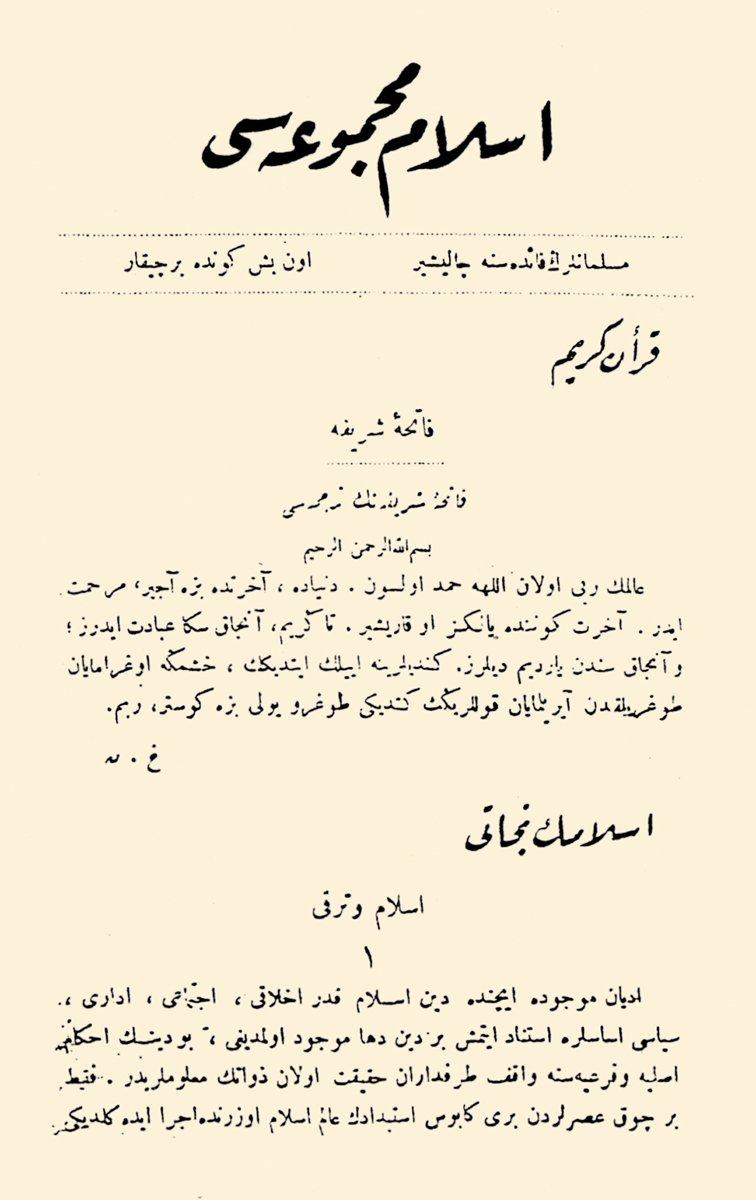 اسلام مجموعه‌سی
مسلمانلرڭ فائده‌سنه چالیشیر
اون بش كونده بر چیقار
قرأن كریم
فاتحۀ شریفه
فاتحۀ شریفه‌نك ترجمه‌سی
بسم الله الرحمن الرحیم
عالمك ربی اولان اللهه حمد اولسون . دنیاده ، آخرتده بزه آجیر، مرحمت
ایدر . آخرت كوننده یالكز او قاریشیر . تاكریم، آنجاق سكا عبادت ایدرز ؛
و آنجاق سندن یاردیم دیلرز. كندیلرینه اییلك ایتدیكك ، خشمكه اوغرامایان
طوغریلقدن آیریلمایان قوللریكك كتدیكی طوغرو یولی بزه كوستر، ربم.
خ . ن
اسلامك نجاتی
اسلام وترقی
۱
ادیان موجوده ایچنده دین اسلام قدر اخلاقی ، اجتماعی ، اداری ،
سیاسی اساسلره استناد ایتمش بر دین دها موجود اولمدیغی ، بو دینك احكام
اصلیه وفرعیه‌سنه واقف طرفداران حقیقت اولان ذواتك معلوملریدر . فقط
بر چوق عصرلردن بری كابوس استبدادك عالم اسلام اوزرنده اجرا ایده كلدیكی